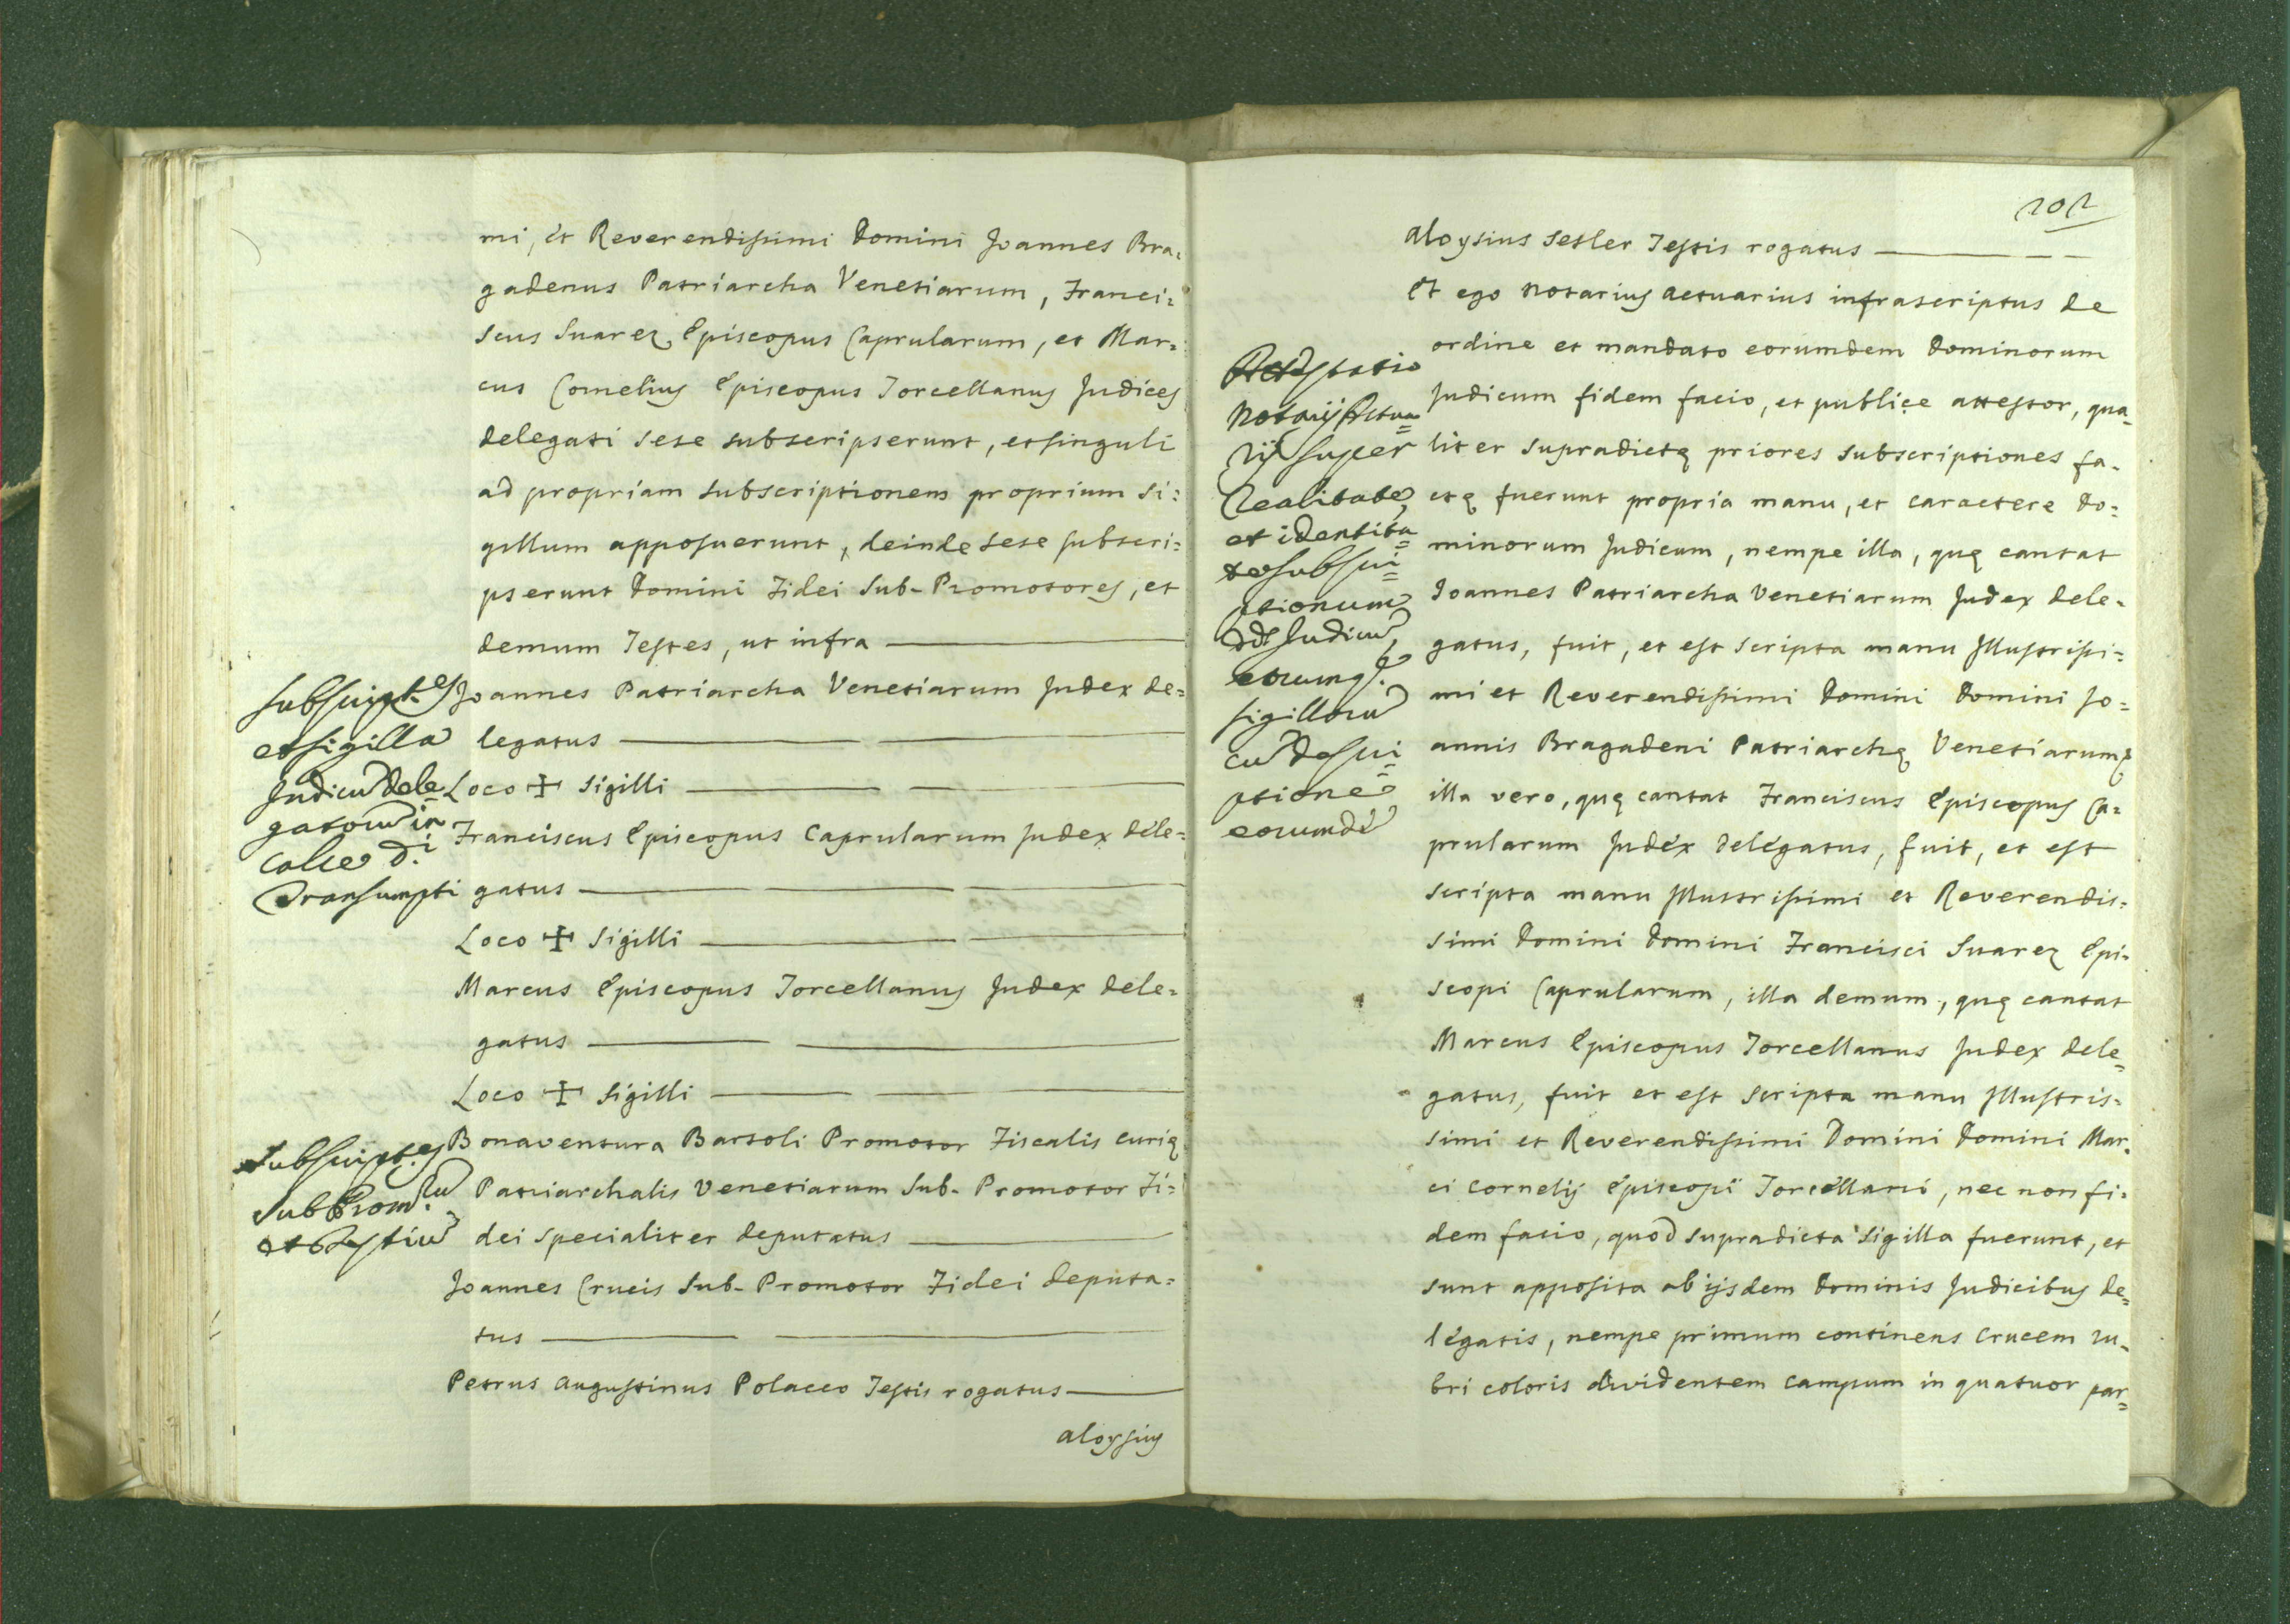 mi, et Reverendissimi Domini Joannes Bra=
gadenus Patriarcha Venetiarum, Franci=
scus Suarez Episcopus Caprularum, et Mar=
cus Cornelius Episcopus Torcellanus Judices
delegati sese subscripserunt, et singuli
ad propriam subscriptionem proprium si=
gillum apposuerunt, deinde sese subscri=
pserunt Domini Fidei Sub-Promotores, et
demum Testes, ut infra
Subscript.es
et sigilla
Judicu dele=
gatoru in
calce d.i
Transumpti
Joannes Patriarcha Venetiarum Judex de=
legatus
Loco ✠ Sigilli
Franciscus Episcopus Caprularum Judex dele=
gatus
Loco ✠ Sigilli
Marcus Episcopus Torcellanus Judex dele=
gatus
Loco ✠ Sigilli
Subscript.es
Sub Prom.ru
et Testiu
Bonaventura Bartoli Promotor Fiscalis Curię
Patriarchalis Venetiarum Sub-Promotor Fi=
dei specialiter deputatus
Joannes Crucis Sub-Promotor Fidei deputa=
tus
Petrus Augustinus Polacco Testis rogatus
Aloysius
202
Aloysius Setler Testis rogatus
Et ego Notarius Actuarius infrascriptus de
ordine et mandato eorumdem Dominorum
Judicum fidem facio, et publice attestor, qua=
liter supradictę priores subscriptiones fa=
ctę fuerunt propria manu, et caractere Do=
minorum Judicum, nempe illa, quę cantat
Joannes Patriarcha Venetiarum Judex dele=
gatus, fuit, et est scripta manu Illustrissi=
mi et Reverendissimi Domini Domini Jo=
annis Bragadeni Patriarchę Venetiarum,
illa vero, quę cantat Franciscus Episcopus Ca=
prularum Judex delegatus, fuit, et est
scripta manu Illustrissimi et Reverendis=
simi Domini Domini Francisci Suarez Epi=
scopi Caprularum, illa demum, quę cantat
Marcus Episcopus Torcellanus Judex dele=
gatus, fuit et est scripta manu Illustris=
simi et Reverendissimi Domini Domini Mar=
ci Cornelij Episcopi Torcellani, nec non fi=
dem facio, quod supradicta sigilla fuerunt, et
sunt apposita ab ijsdem Dominis Judicibus de=
legatis, nempe primum continens Crucem ru=
bri coloris dividentem campum in quatuor par=
Attestatio
Notarij Actua=
rij super
realitate,
et identita=
te subscri=
ptionum
dd. Judicu,
eorumq.
sigilloru
cu descri=
ptione
eorumde